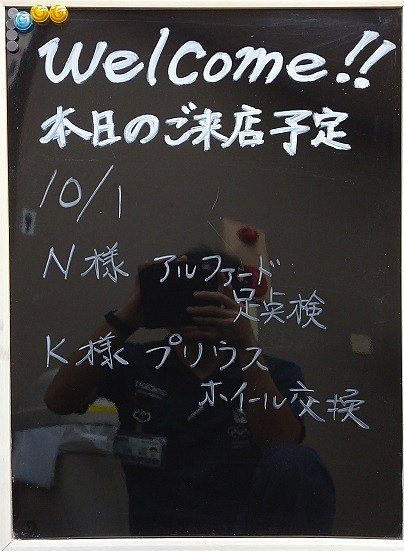 Welcome!!
本日のご来店予定
10/1
N様 アルファード
足点検
K様 プリウス
ホイール交換